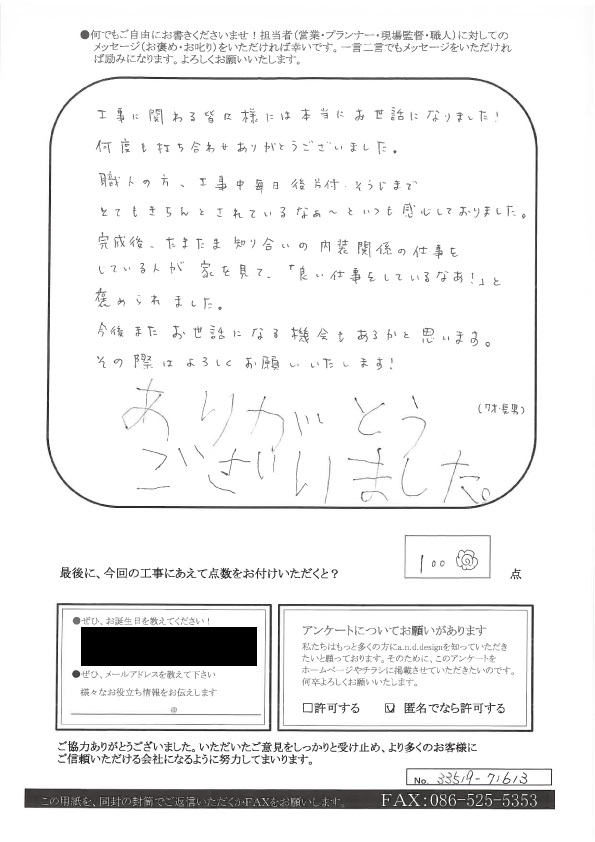 ●何でもご自由にお書きくださいませ!担当者(営業・プランナー・現場監督・職人)に対しての
メッセージ(お褒め・お叱り)をいただければ幸いです。一言二言でもメッセージをいただけれ
ば励みになります。よろしくお願いいたします。
工事に関わる皆々様には本当にお世話になりました!
何度も打ち合わせありがとうございました。
職人の方、工事中毎日後片付・そうじまで
とてもきちんとされているなぁ〜といつも感心しておりました。
完成後、たまたま知り合いの内装関係の仕事を
している人が家を見て、「良い仕事をしているなあ!」と
褒められました。
今後またお世話になる機会もあるかと思います。
その際はよろしくお願いいたします!
ありがとう
(7才・長男)
ございました。
最後に、今回の工事にあえて点数をお付けいただくと?
100
点
●ぜひ、お誕生日を教えてください!
●ぜひ、メールアドレスを教えて下さい
様々なお役立ち情報をお伝えします
@
アンケートについてお願いがあります
私たちはもっと多くの方にa.n.d.designを知っていただき
たいと願っております。そのために、このアンケートを
ホームページやチラシに掲載させていただきたいのです。
何卒よろしくお願いいたします。
□許可する ☑ 匿名でなら許可する
ご協力ありがとうございました。いただいたご意見をしっかりと受け止め、より多くのお客様に
ご信頼いただける会社になるように努力してまいります。
No. 33519-71613
この用紙を、同封の封筒でご返信いただくかFAXをお願いします。 FAX:086-525-5353